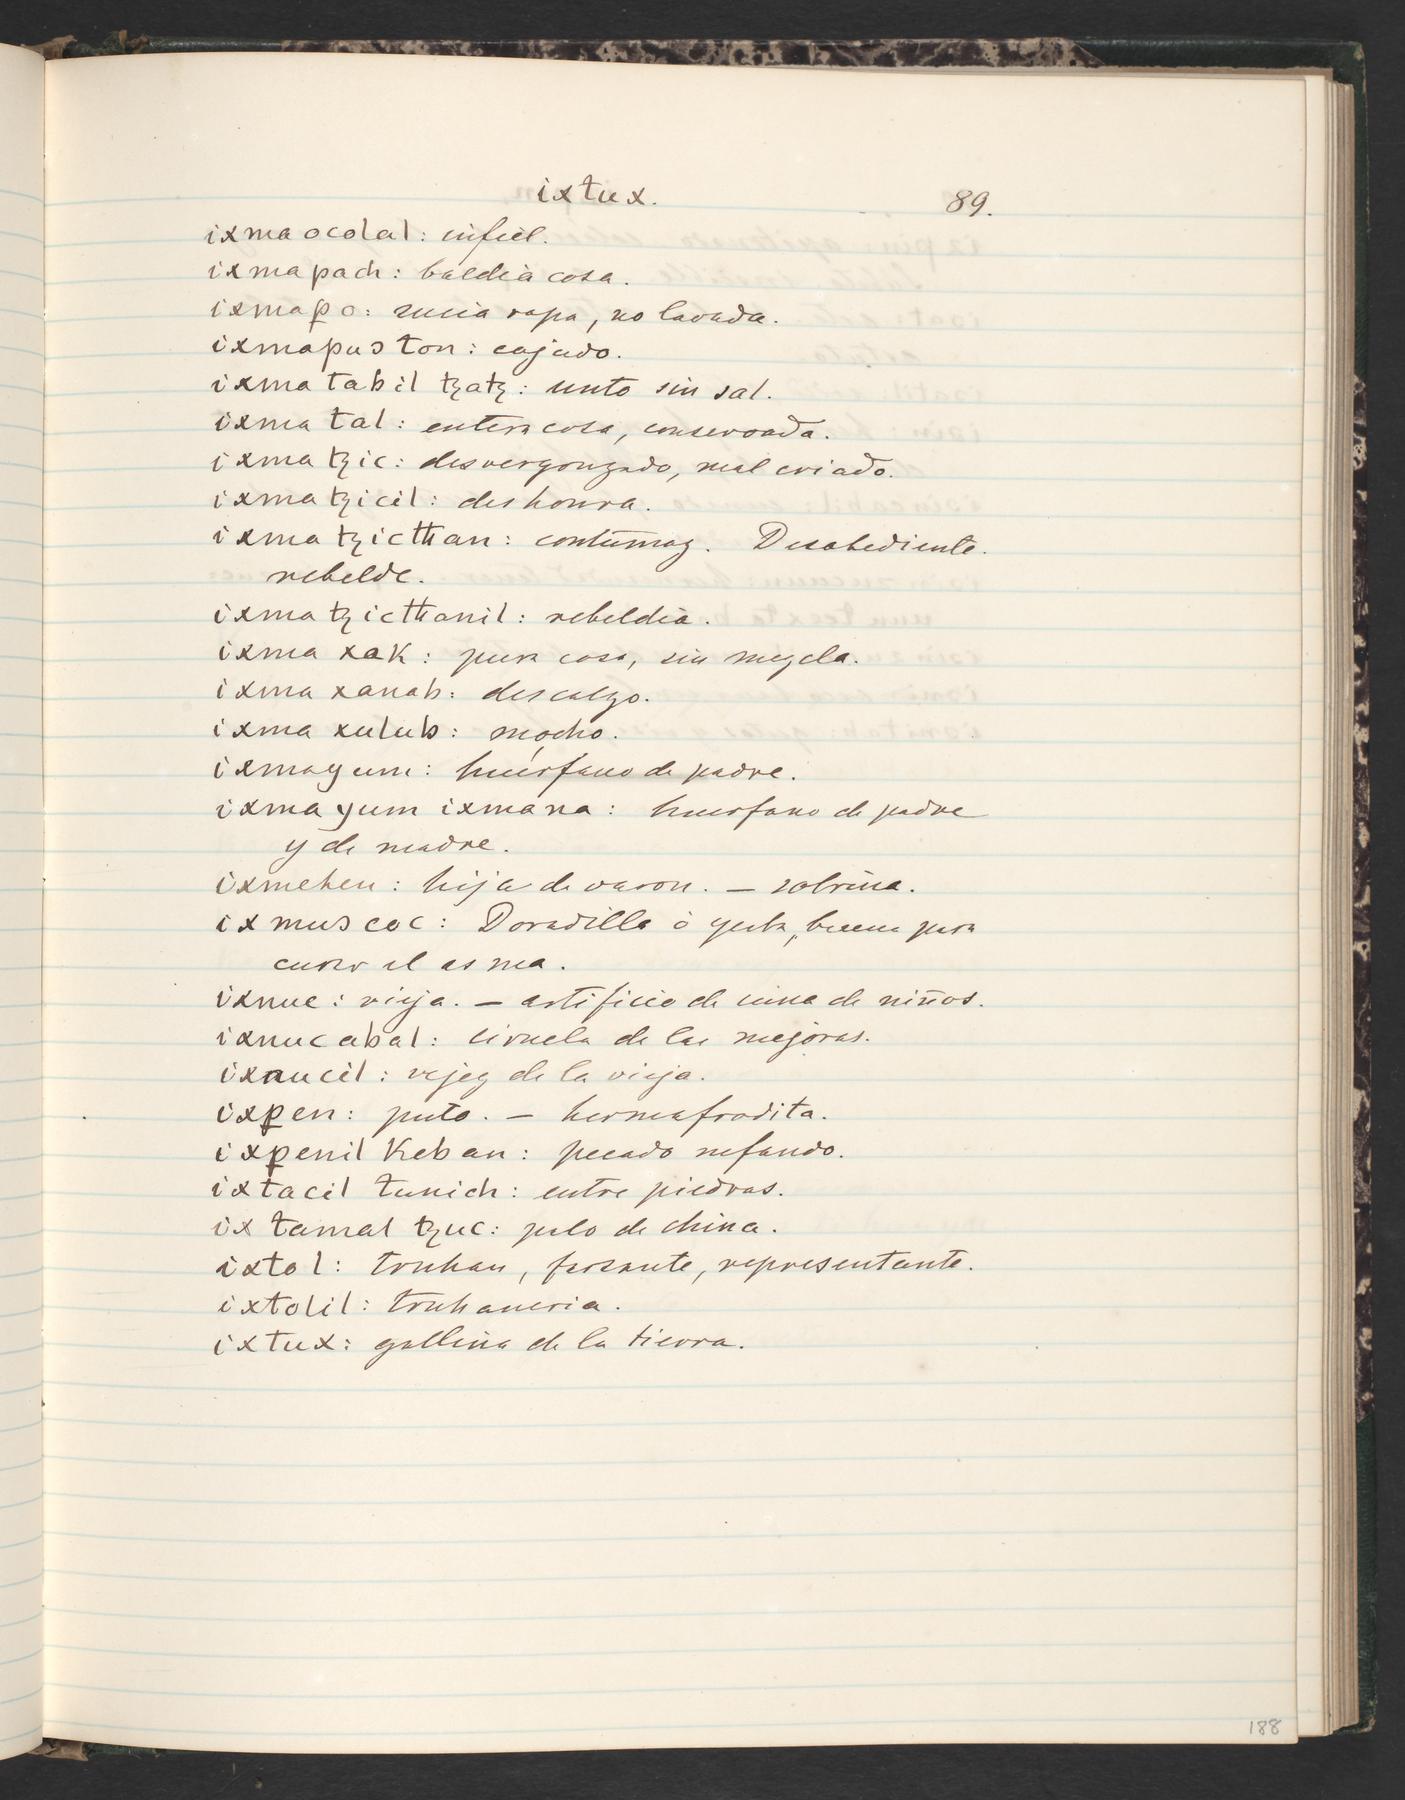 ixtux.
89.
ixmaocolal: infiel.
ixmapach: baldia cosa.
ixmap̱o: sucia ropa, no lavada.
ixmapuston: cojudo.
ixmatabil tzatz: unto sin sal.
ixmatal: entera cosa, conservada.
ixmatzic: desvergonzado, mal criado.
ixmatzicil: deshonra.
ixmatzicthan: contumaz. Desobediente.
rebelde.
ixmatzicthanil: rebeldia.
ixma xak: pura cosa, sin mezcla.
ixma xanab: descalzo.
ixma xulub: mocho.
ixmayum: huerfano de padre.
ixmayum ixmana: huerfano de padre
y de madre.
ixmehen: hija de varon. — sobrina.
ixmuscoc: Doradilla ò yerba, buena para
curar el asma.
ixnuc: vieja. — artificio de cuna de niños.
ixnucabal: ciruela de las mejoras.
ixnucil: vejez de la vieja.
ixp̱en: puto. — hermafrodita.
ixp̱enil Keban: pecado nefando.
ixtacil tunich: entre piedras.
ix tamal tzuc: pelo de china.
ixtol: truhan, farsante, representante.
ixtolil: truhaneria.
ixtux: gallina de la tierra.
188